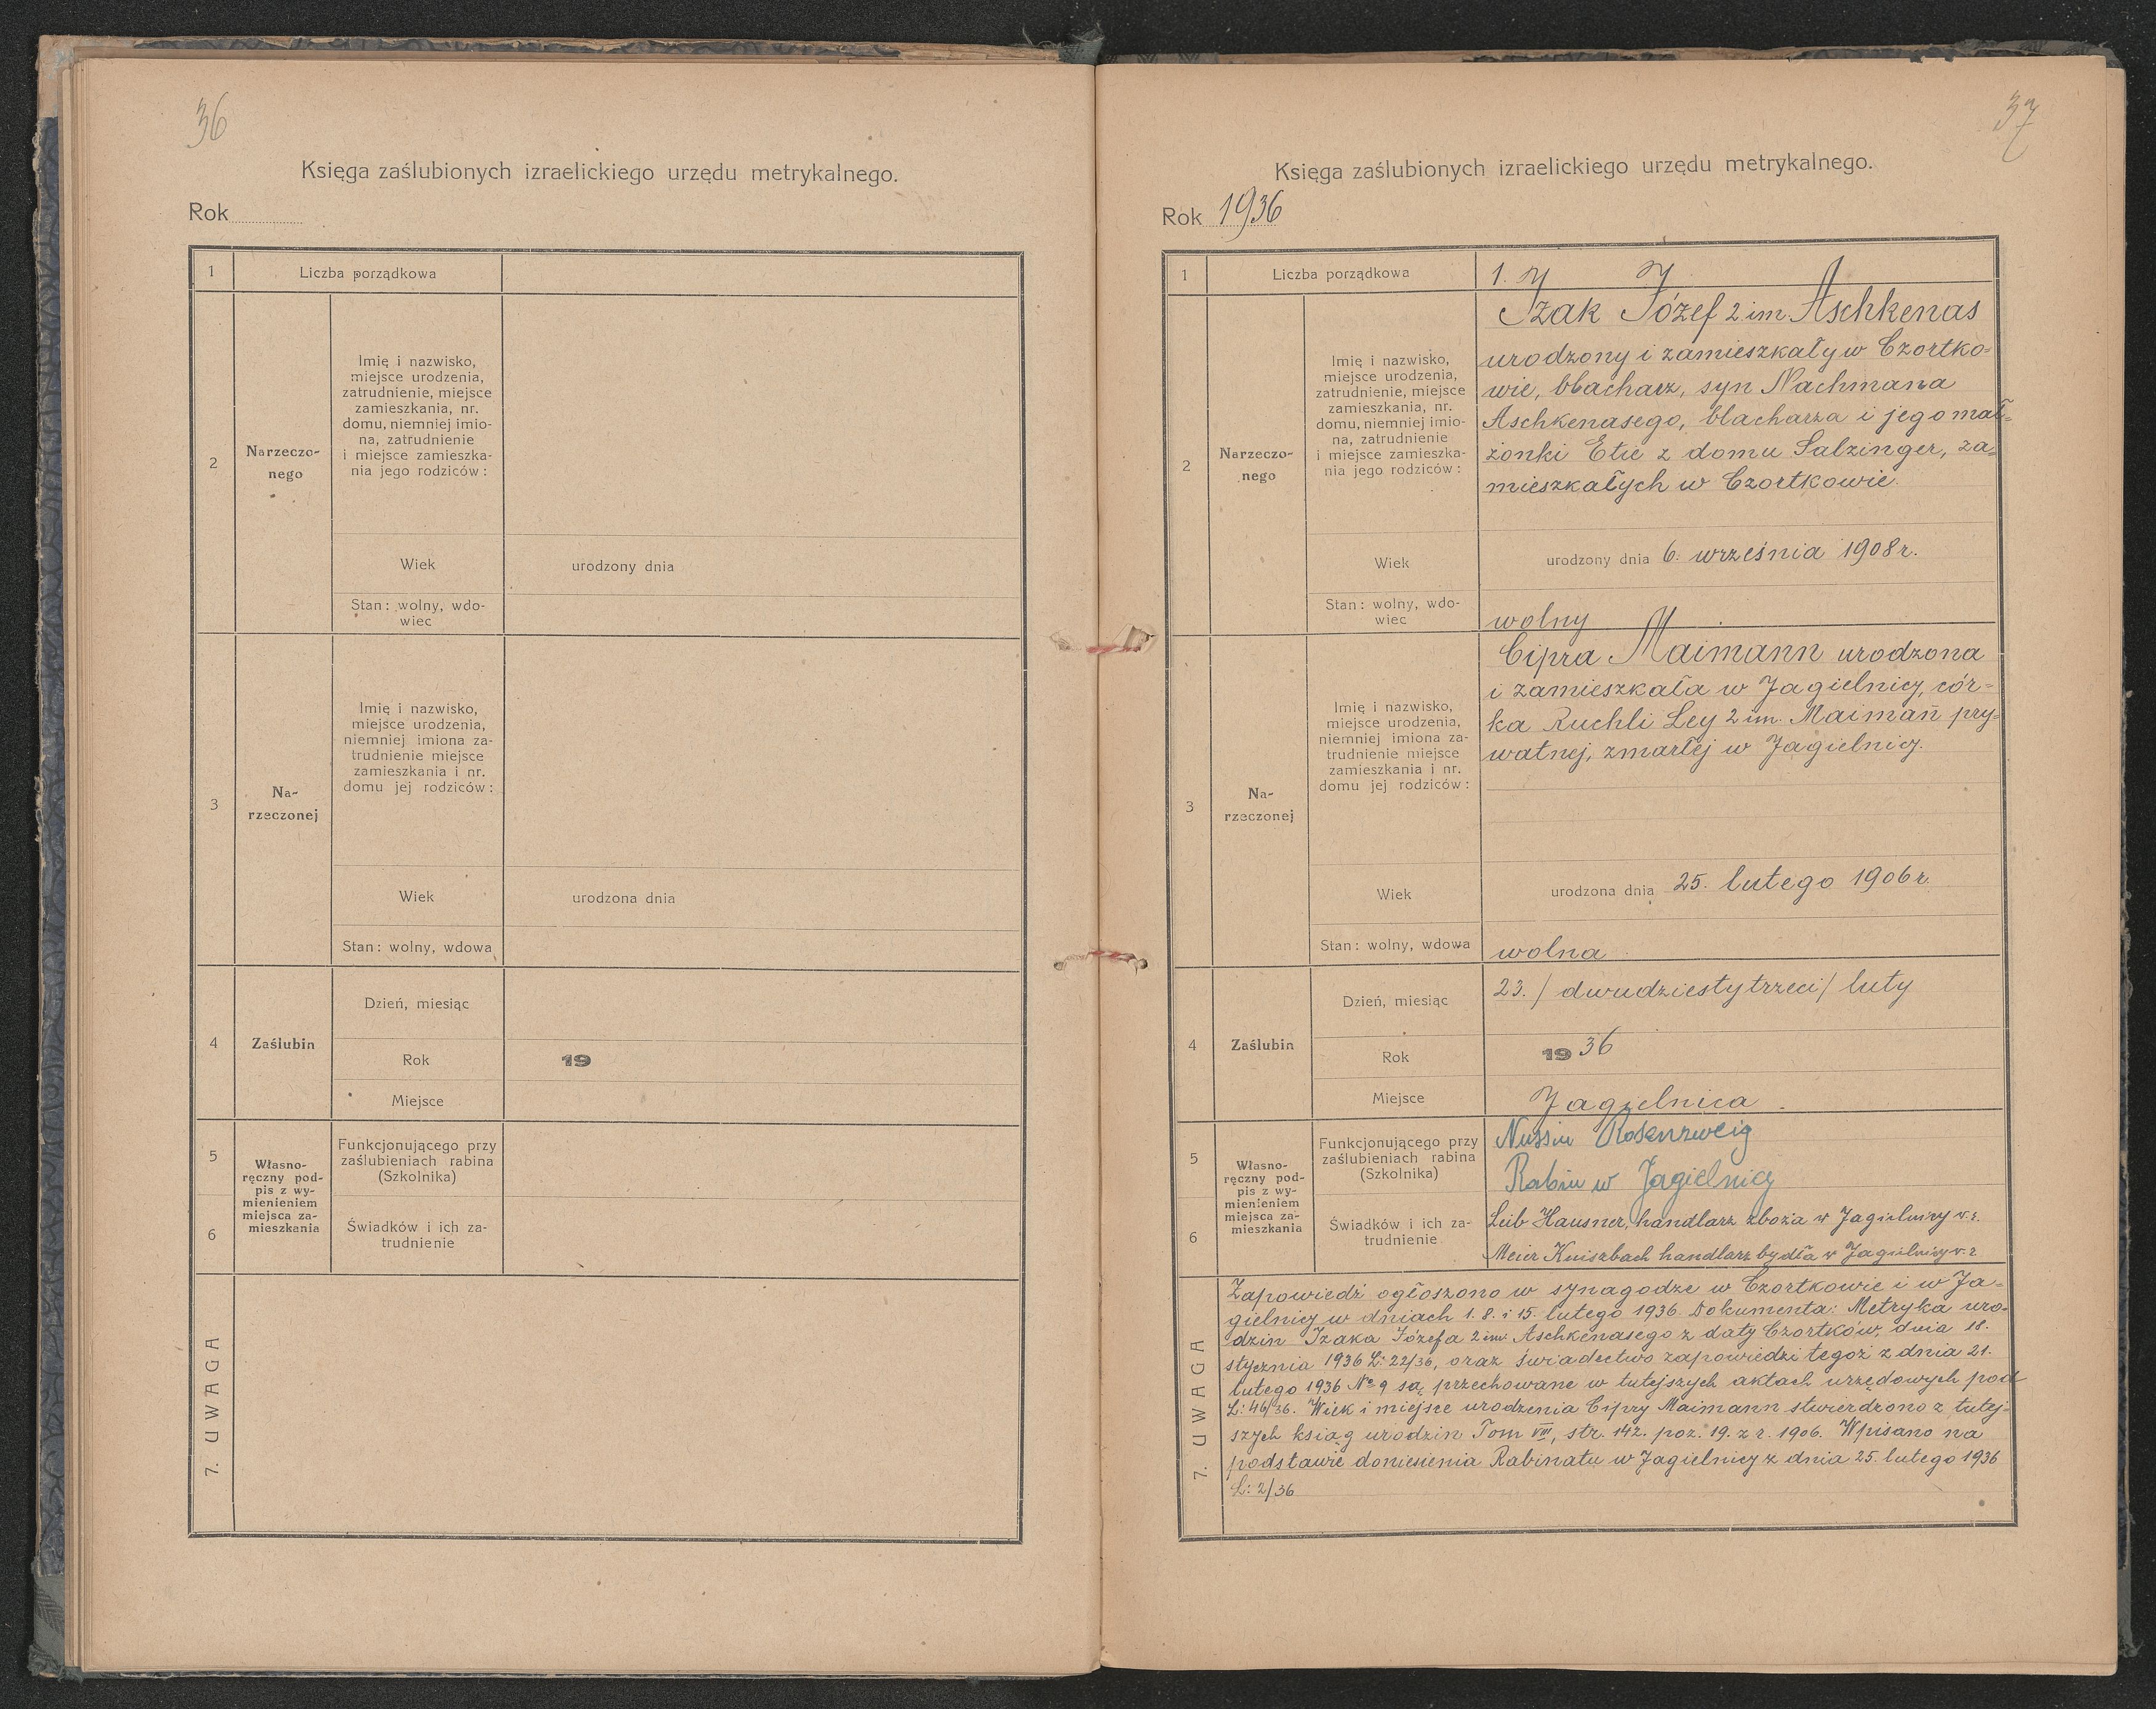 36
Księga zaślubionych izraelickiego urzędu metrykalnego.
Rok
1
Liczba porządkowa
2
Narzeczo-
nego
Imię i nazwisko,
miejsce urodzenia,
zatrudnienie, miejsce
zamieszkania, nr.
domu, niemniej imio-
na, zatrudnienie
i miejsce zamieszka-
nia jego rodziców:
Wiek
urodzony dnia
Stan: wolny, wdo-
wiec
3
Na-
rzeczonej
Imię i nazwisko,
miejsce urodzenia,
niemniej imiona za-
trudnienie miejsce
zamieszkania i nr.
domu jej rodziców:
Wiek
urodzona dnia
Stan: wolny, wdowa
4
Zaślubin
Dzień, miesiąc
Rok
19
Miejsce
5
6
Własno-
ręczny pod-
pis z wy-
mienieniem
miejsca za-
mieszkania
Funkcjonującego przy
zaślubieniach rabina
(Szkolnika)
Świadków i ich za-
trudnienie
7. UWAGA
37
Księga zaślubionych izraelickiego urzędu metrykalnego.
Rok 1936
1
Liczba porządkowa
1.
2
Narzeczo-
nego
Imię i nazwisko,
miejsce urodzenia,
zatrudnienie, miejsce
zamieszkania, nr.
domu, niemniej imio-
na, zatrudnienie
i miejsce zamieszka-
nia jego rodziców:
Izak Józef 2 im. Aschkenas
urodzony i zamieszkały w Czortko-
wie, blacharz, syn Nachmana
Aschkenasego, blacharza i jego mał-
żonki Etie z domu Salzinger, za-
mieszkałych w Czortkowie.
Wiek
urodzony dnia 6. września 1908 r.
Stan: wolny, wdo-
wiec
wolny
3
Na-
rzeczonej
Imię i nazwisko,
miejsce urodzenia,
niemniej imiona za-
trudnienie miejsce
zamieszkania i nr.
domu jej rodziców:
Cipra Maimann urodzona
i zamieszkała w Jagielnicy, cór-
ka Ruchli Ley 2 im. Maimañ pry-
watnej, zmarłej w Jagielnicy.
Wiek
urodzona dnia 25. lutego 1906 r.
Stan: wolny, wdowa
wolna
4
Zaślubin
Dzień, miesiąc
23. / dwudziesty trzeci / luty
Rok
1936
Miejsce
Jagielnica.
5
6
Własno-
ręczny pod-
pis z wy-
mienieniem
miejsca za-
mieszkania
Funkcjonującego przy
zaślubieniach rabina
(Szkolnika)
Nussin Rosenzweig
Rabin w Jagielnicy
Świadków i ich za-
trudnienie
Leib Hausner, handlarz zboża w Jagielnicy w. r.
Meier Kniszbach handlarz bydła w Jagielnicy w. r.
7. UWAGA
Zapowiedzi ogłoszono w synagodze w Czortkowie i w Ja-
gielnicy w dniach 1. 8. i 15. lutego 1936. Dokumenta: Metryka uro-
dzin Izaka Józefa 2 im. Aschkenasego z daty Czortków, dnia 18.
stycznia 1936 L: 22/36, oraz świadectwo zapowiedzi tegoż z dnia 21.
lutego 1936 № 9 są przechowane w tutejszych aktach urzędowych pod
L: 46/36. Wiek i miejsce urodzenia Cipry Maimann stwierdzono z tutej-
szych ksiąg urodzin Tom VIII, str. 142. poz. 19. z r. 1906. Wpisano na
podstawie doniesienia Rabinatu w Jagielnicy z dnia 25. lutego 1936
L: 2/36